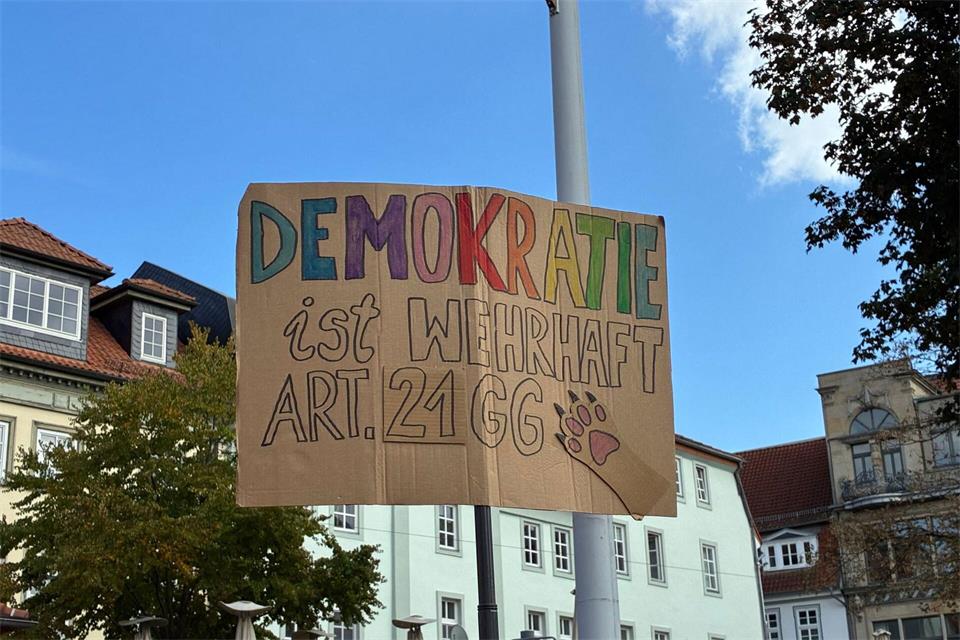 DEMOKRATIE
ist WEHRHAFT
ART. 21 GG